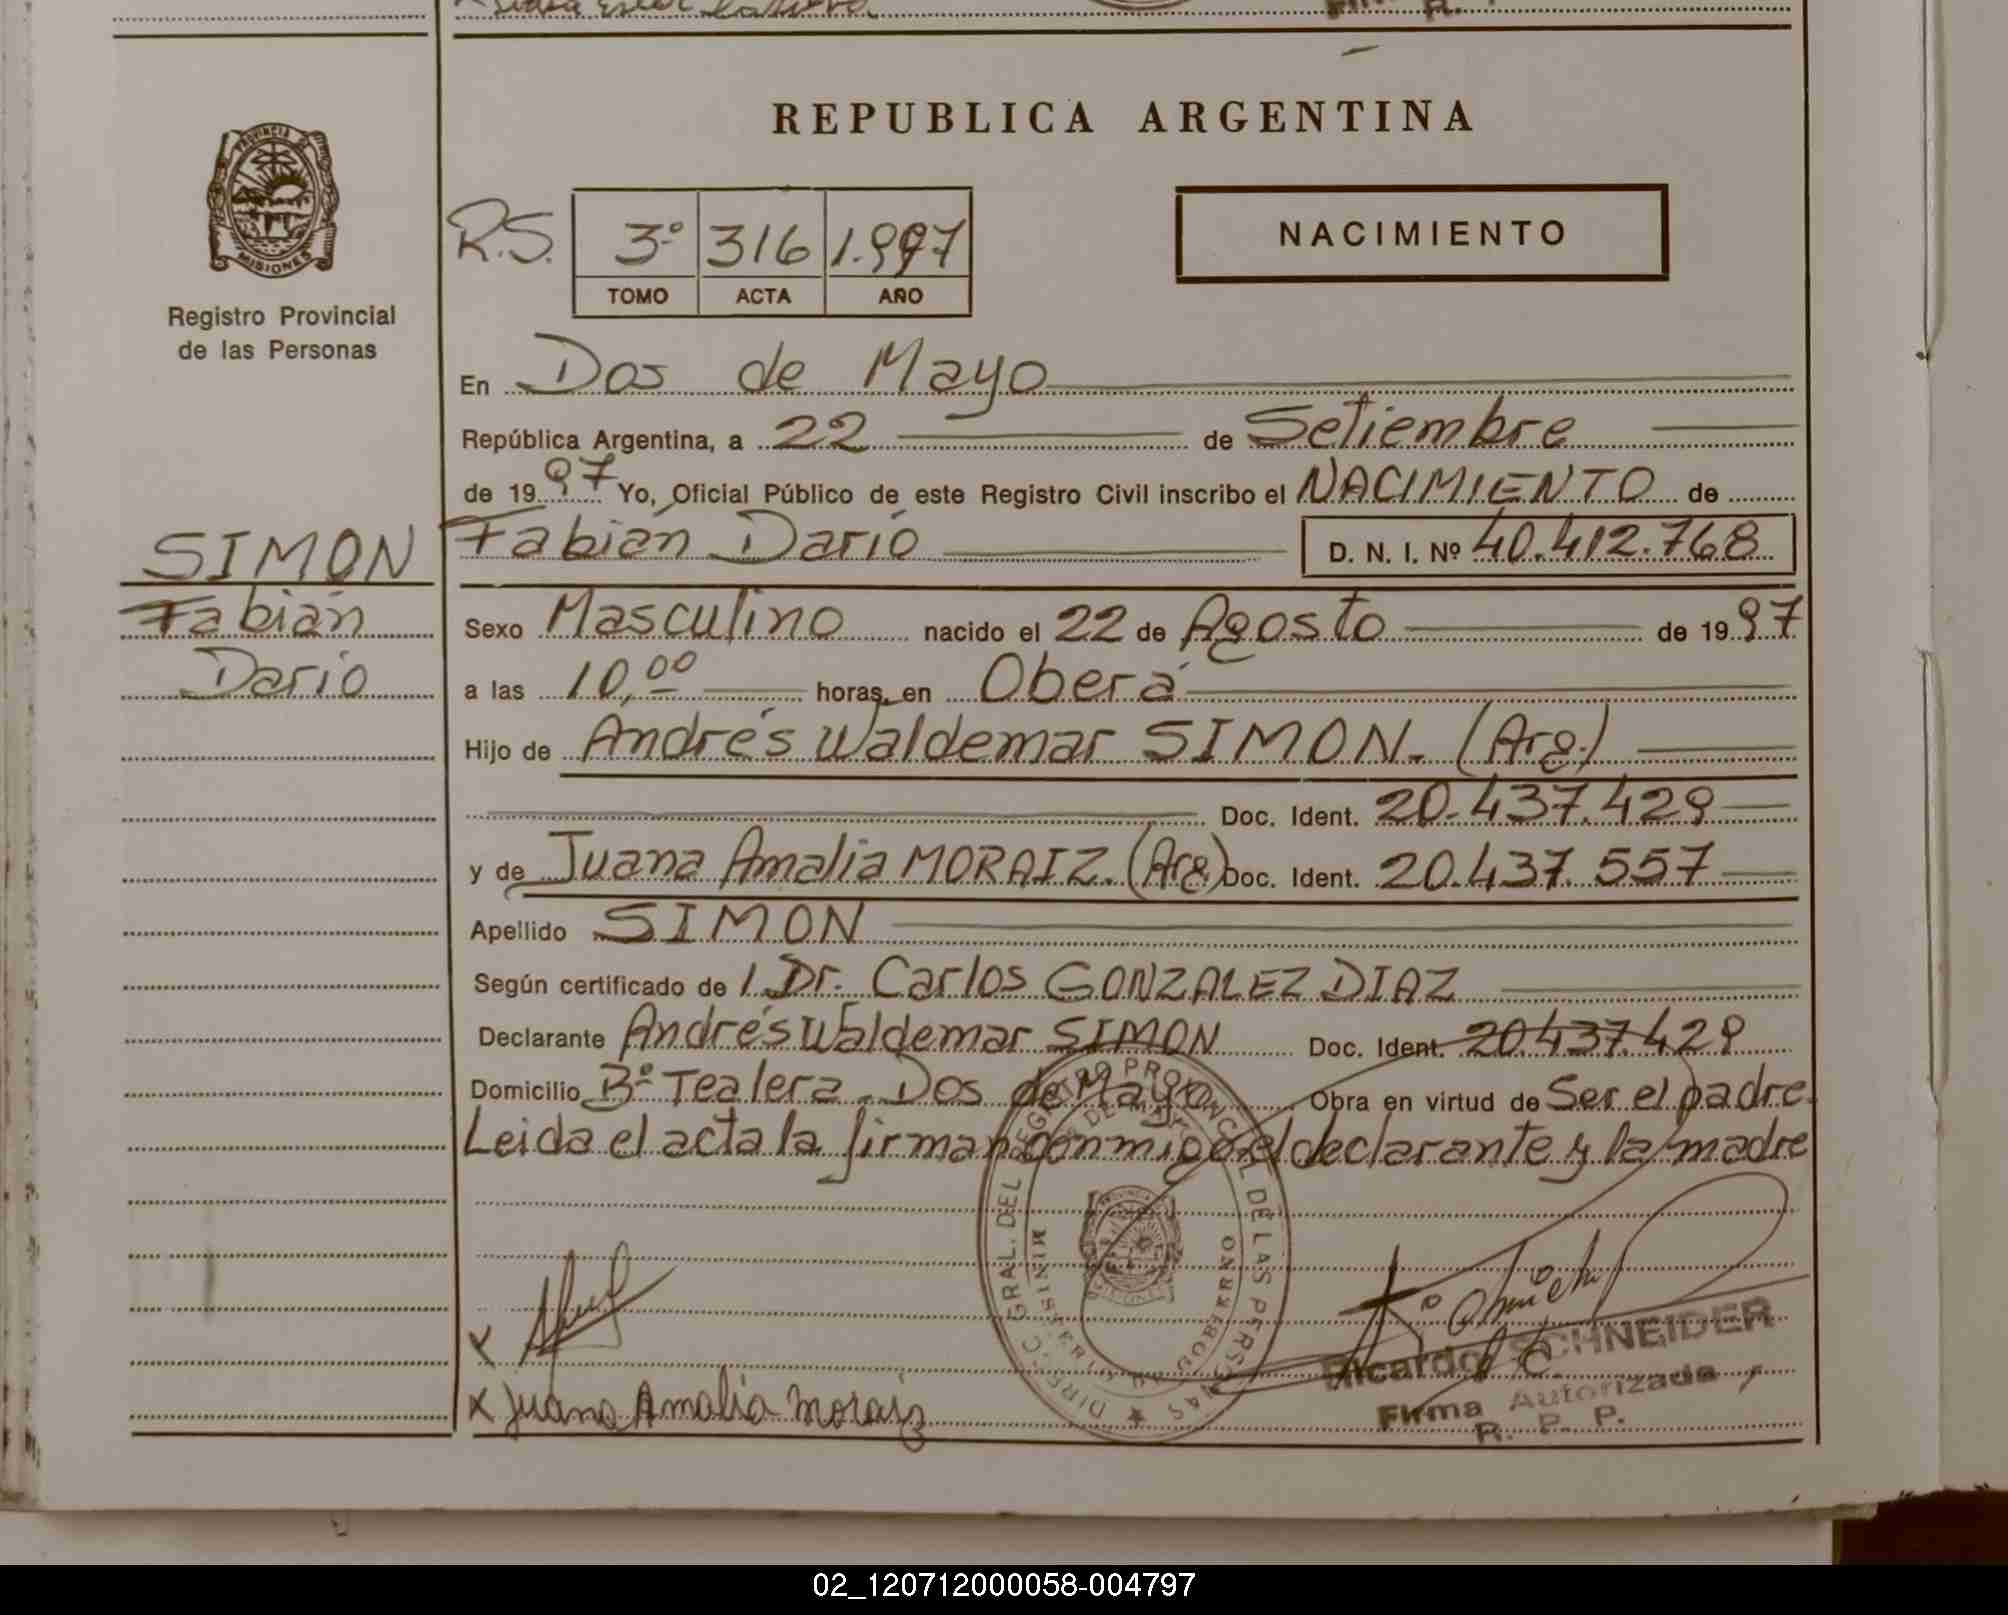 REPUBLICA ARGENTINA
PROVINCIA DE
MISIONES
Registro Provincial
de las Personas
R.S. 3º 316 1.997
TOMO ACTA AÑO
NACIMIENTO
En Dos de Mayo
República Argentina, a 22 de Setiembre
de 1997 Yo, Oficial Público de este Registro Civil inscribo el NACIMIENTO de
SIMON
Fabián Darío D. N. I. Nº 40.412.768
Fabián
Sexo Masculino nacido el 22 de Agosto de 1997
Darío
a las 10,00 horas, en Oberá
Hijo de Andrés Waldemar SIMON. (Arg.)
Doc. Ident. 20.437.429
y de Juana Amalia MORAIZ. (Arg.) Doc. Ident. 20.437.557
Apellido SIMON
Según certificado de 1 Dr. Carlos GONZALEZ DIAZ
Declarante Andrés Waldemar SIMON Doc. Ident. 20.437.429
Domicilio Bº Tealera. Dos de Mayo Obra en virtud de Ser el padre.
Leida el acta la firman conmigo el declarante y la madre
DIRECC. GRAL. DEL REGISTRO PROVINCIAL DE LAS PERSONAS
MINISTERIO DE GOBIERNO
x
x Juana Amalia Moraiz
Ricardo SCHNEIDER
Firma Autorizada
R. P. P.
02_120712000058-004797